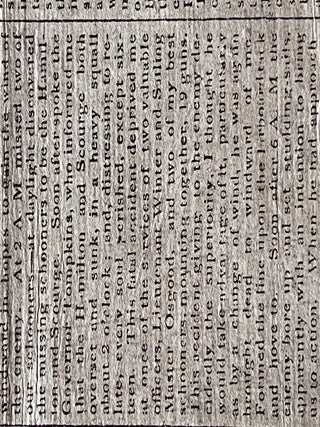 At 2 A M missed two of
our schooners. At daylight discovered the
missing schooners to be the
and Scourge. Soon after, spoke the
Governor Tompkins, who informed me
that the Hamilton and Scourge both
overset and sunk, in a heavy squall
about 2 o'clock; and, distressing to re-
late, every soul perished, except six-
teen. This fatal accident deprived me
at once of the services of two valuable
officers, Lieutenant Winter and Sailing
Master Osgood, and two of my best
schooners, mounting together, 19 guns.
This accident giving to the enemy de-
cidedly the superiority, I thought he
would take advantage of it, particularly
as by a change of wind, he was again
brought dead to windward of me.
Formed the line upon the larboard tack
and hove to. Soon after 6 A M the
enemy bore up and set studding-sails,
apparently with an intention to bring